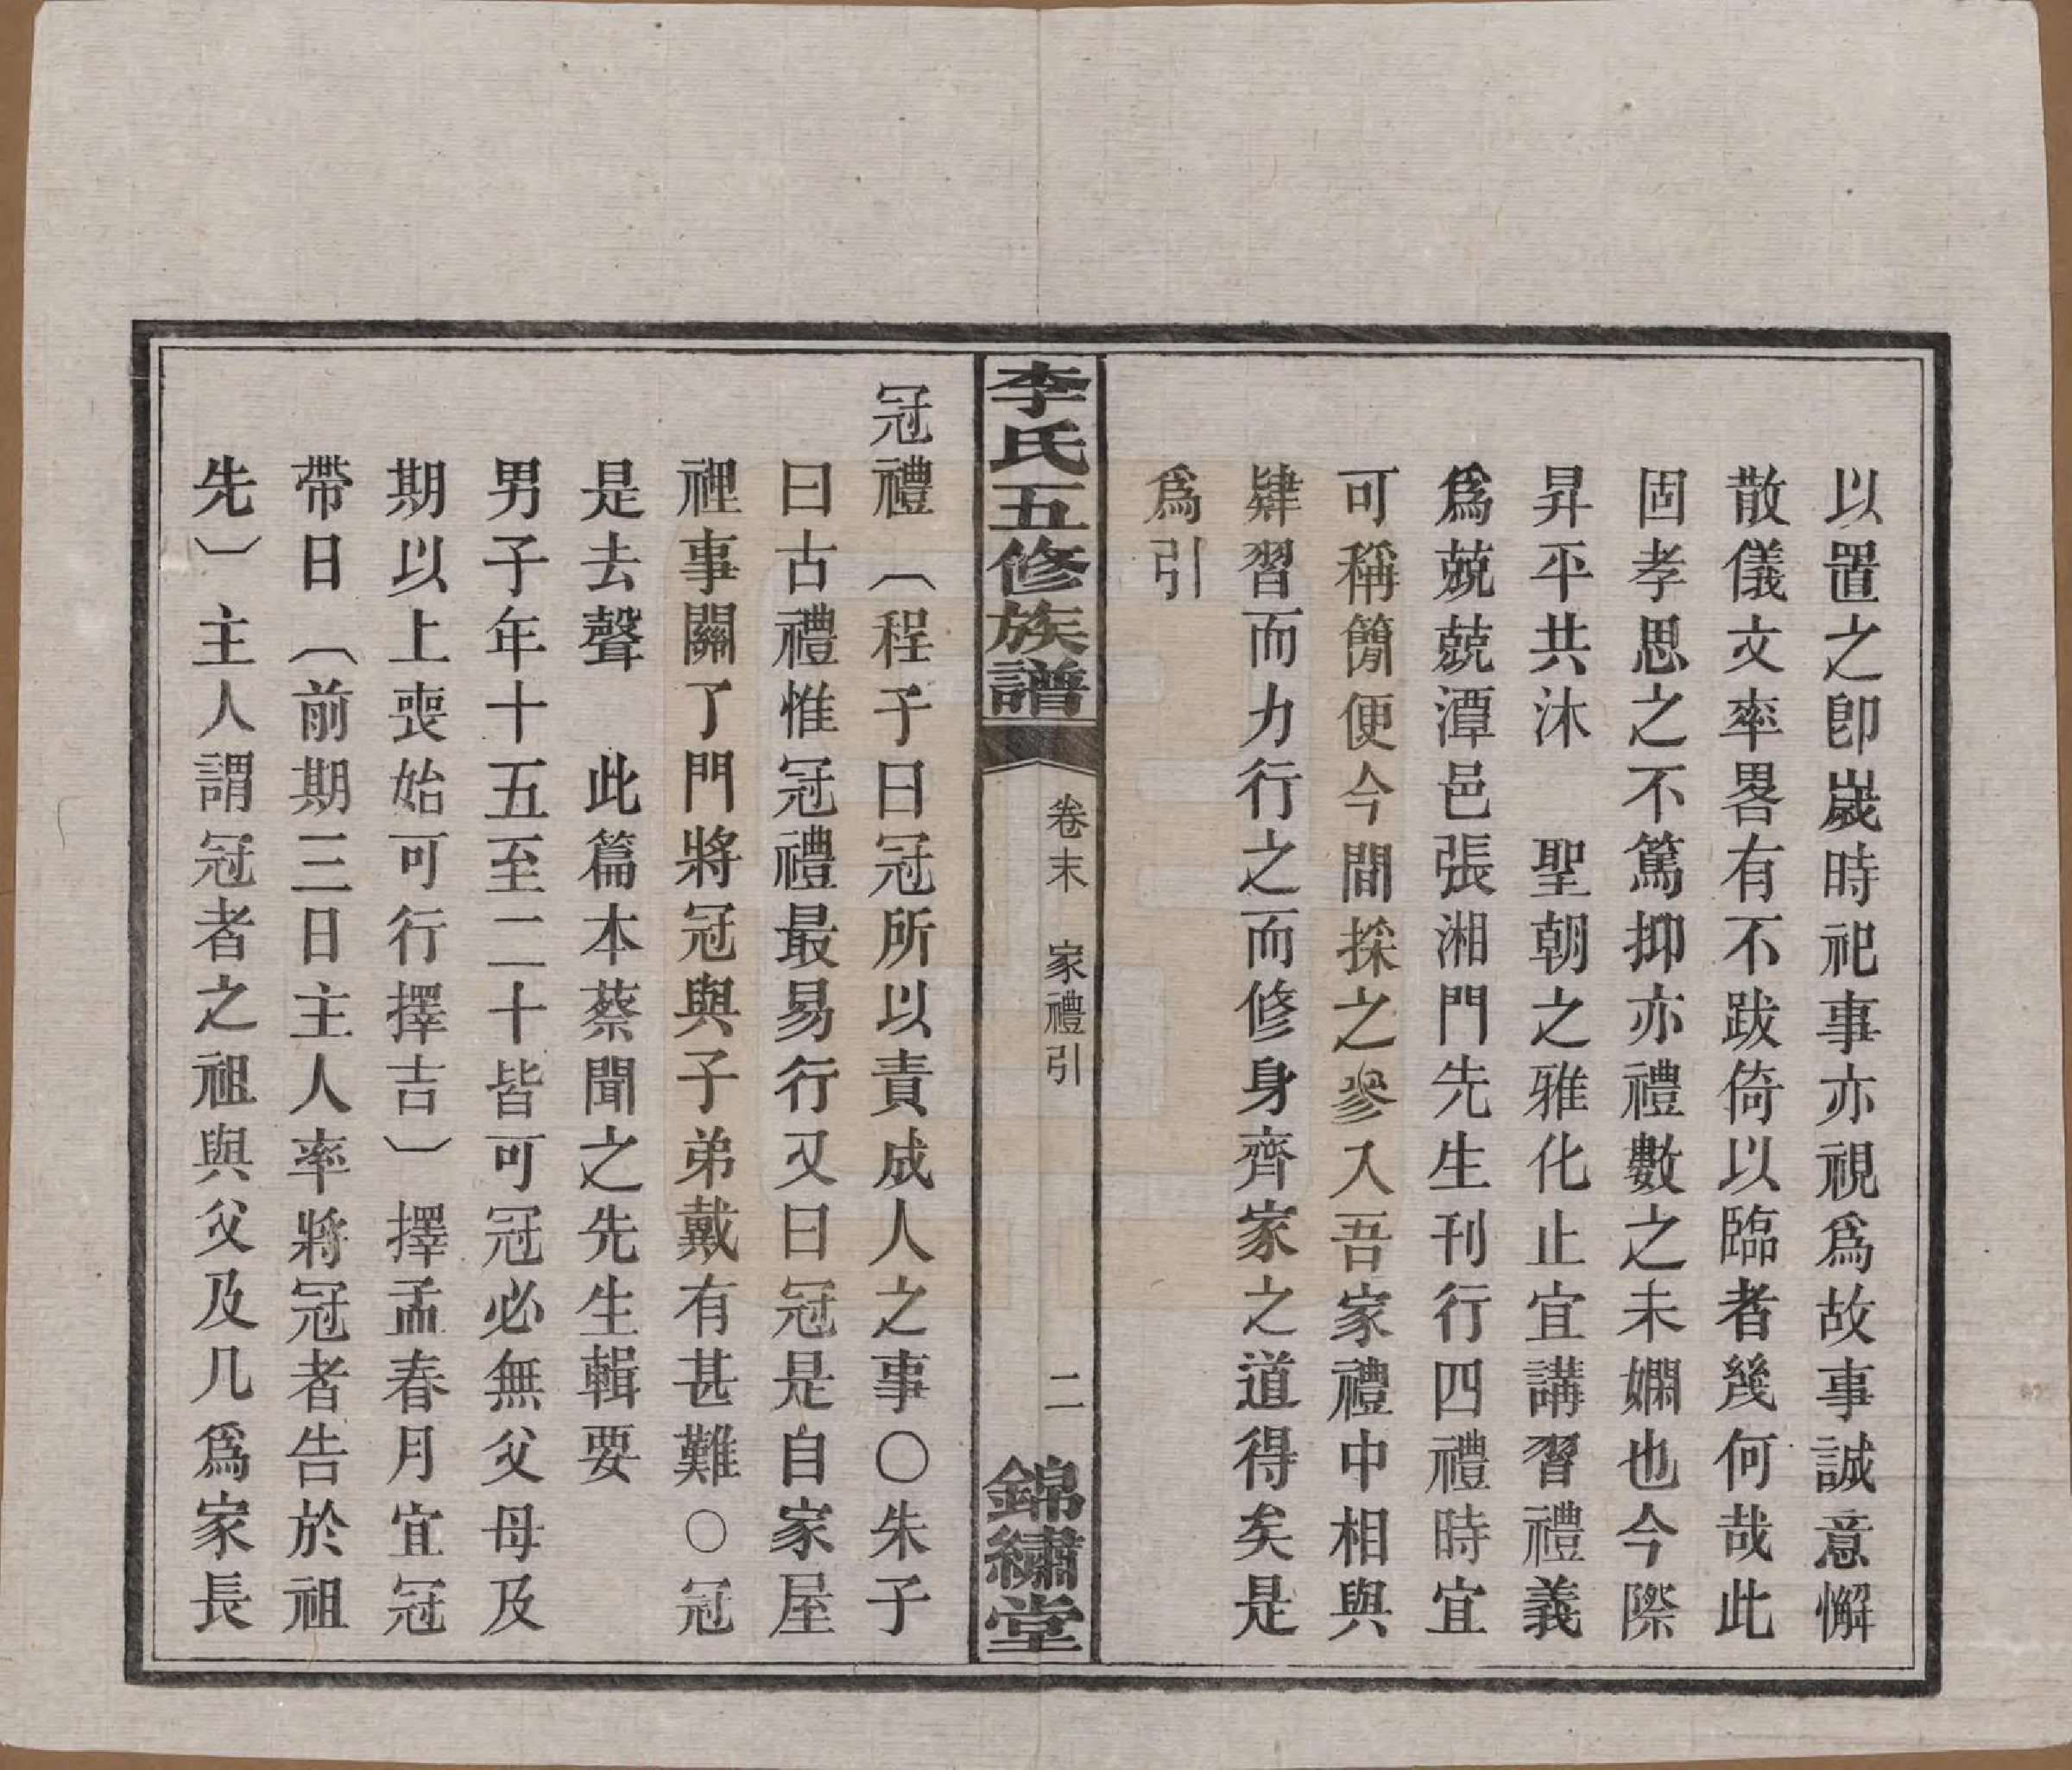 以置之卽嵗時祀事亦視爲故事誠意懈
散儀文率畧有不跋倚以臨者幾何哉此
固孝思之不篤抑亦禮數之未嫻也今際
昇平共沐　聖朝之雅化止宜講習禮義
爲兢兢潭邑張湘門先生刊行四禮時宜
可稱簡便今間採之參入吾家禮中相與
肄習而力行之而修身齊家之道得矣是
爲引
李氏五修族譜
卷末　家禮引
二
錦繡堂
冠禮〔程子曰冠所以責成人之事〇朱子
曰古禮惟冠禮最易行又曰冠是自家屋
裡事關了門將冠與子弟戴有甚難〇冠
是去聲　此篇本蔡聞之先生輯要
男子年十五至二十皆可冠必無父母及
期以上喪始可行擇吉〕擇孟春月宜冠
帶日〔前期三日主人率將冠者告於祖
先〕主人謂冠者之祖與父及凡爲家長